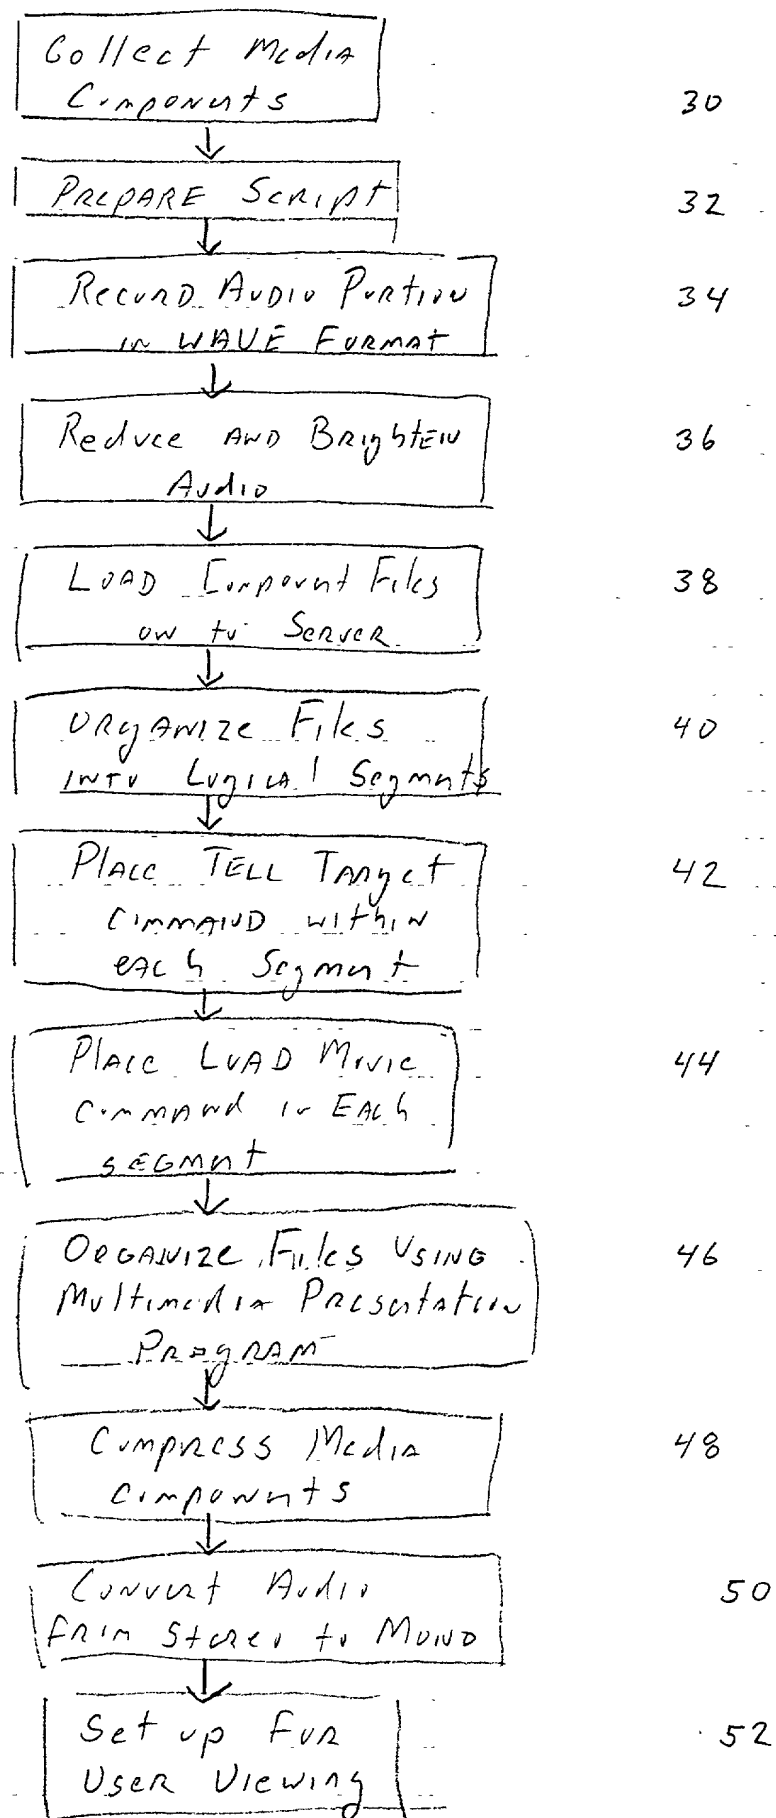 Collect Media
Components
30
PREPARE Script
32
RECORD AUDIO PORTION
IN WAVE FORMAT
34
Reduce AND BRIGhtEN
Audio
36
LOAD Component Files
ON to SERVER
38
ORGANIZE Files
INTO Logical Segments
40
Place TELL Target
COMMAND withIN
each Segment
42
Place LOAD Movie
COMMAND in EACh
SEGMENT
44
ORGANIZE Files USING
Multimedia PRESENtAtion
PROGRAM
46
Compress Media
Components
48
Convert Audio
FROM Stereo to MONO
50
Set up FOR
User Viewing
52